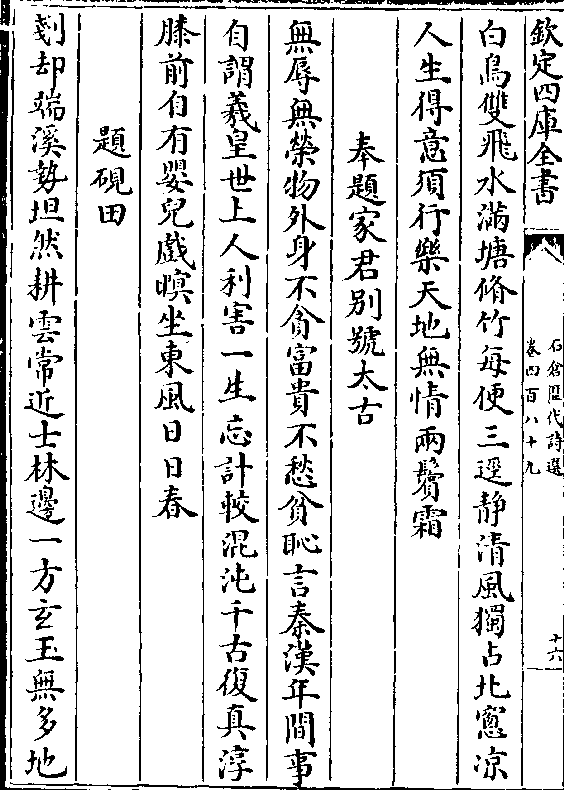 欽定四庫全書
石倉歷代詩選
卷四百八十九
十六
白鳥雙飛水滿塘脩竹每便三逕静清風獨占北窻凉
人生得意須行樂天地無情兩鬢霜
奉題家君别號太古
無辱無榮物外身不貪富貴不愁貧恥言秦漢年間事
自謂羲皇世上人利害一生忘計較混沌千古復真淳
膝前自有嬰兒戲暝坐東風日日春
題硯田
剗却端溪勢坦然耕雲常近士林邊一方玄玉無多地